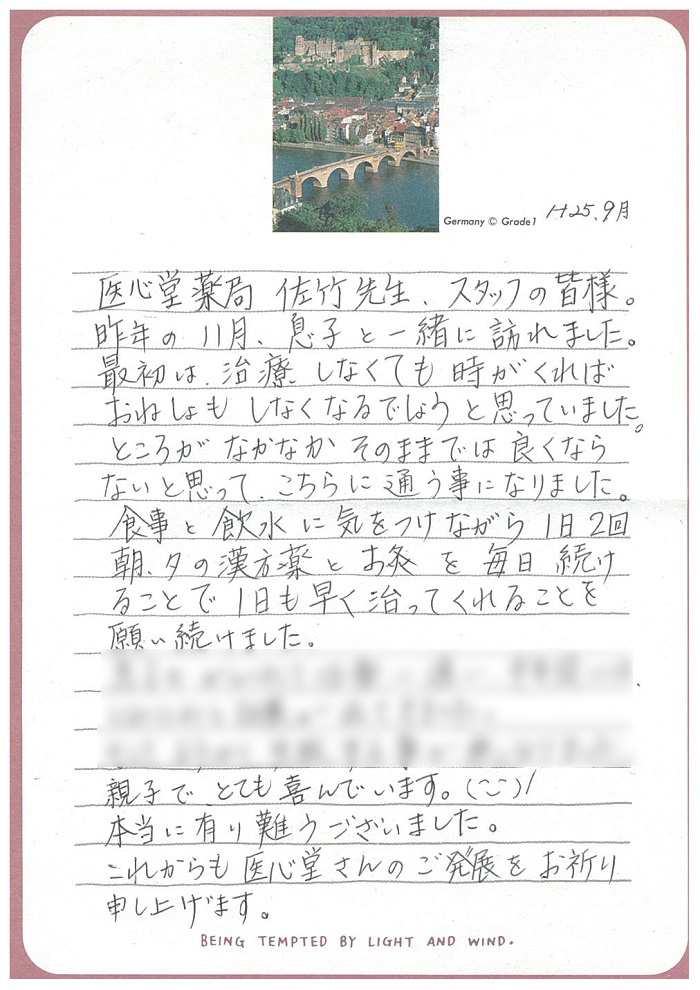 Germany © Grade1
H25.9月
医心堂薬局 佐竹先生、スタッフの皆様。
昨年の11月、息子と一緒に訪れました。
最初は、治療しなくても時がくれば
おねしょもしなくなるでしょうと思っていました。
ところがなかなかそのままでは良くなら
ないと思って、こちらに通う事になりました。
食事と飲水に気をつけながら1日2回
朝、夕の漢方薬とお灸を毎日続け
ることで1日も早く治ってくれることを
願い続けました。
親子で、とても喜んでいます。(^^)/
本当に有り難うございました。
これからも医心堂さんのご発展をお祈り
申し上げます。
BEING TEMPTED BY LIGHT AND WIND.